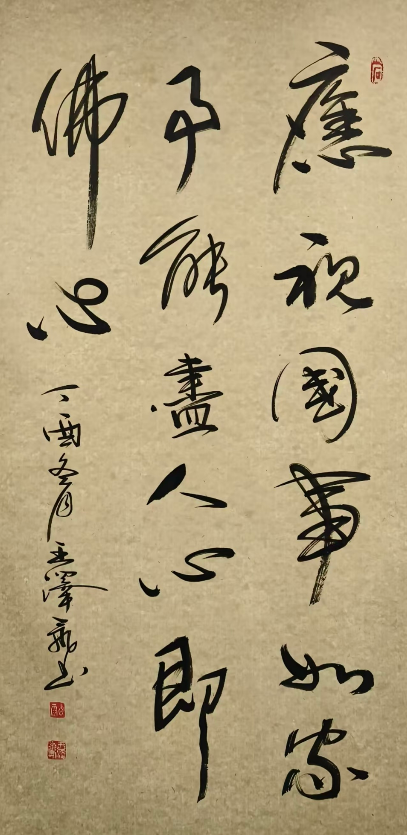 應視國事如家
事能盡人心即
佛心
丁酉冬月王澤